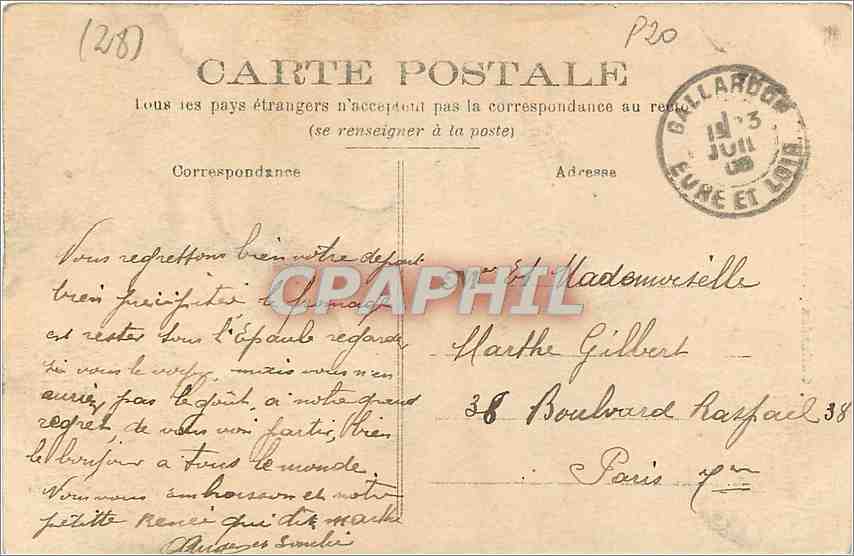 (28)
P20
CARTE POSTALE
Tous les pays étrangers n'acceptent pas la correspondance au recto
(se renseigner à la poste)
GALLARDON
13
JUIL
08
EURE ET LOIR
Correspondance
Adresse
CPAPHIL
Nous regrettons bien votre depart
bien precipiter le fromage
est rester sous l'Epaule regarder
si vous le voyer mais vous n'en
auriez pas le goût, a notre grand
regret, de vous voir partir, bien
le bonjour a tous le monde.
Nous vous embrasson et notre
petitte Renée qui dit marthe
et Mademoiselle
Marthe Gilbert
38 Boulvard Raspail 38
Paris 7